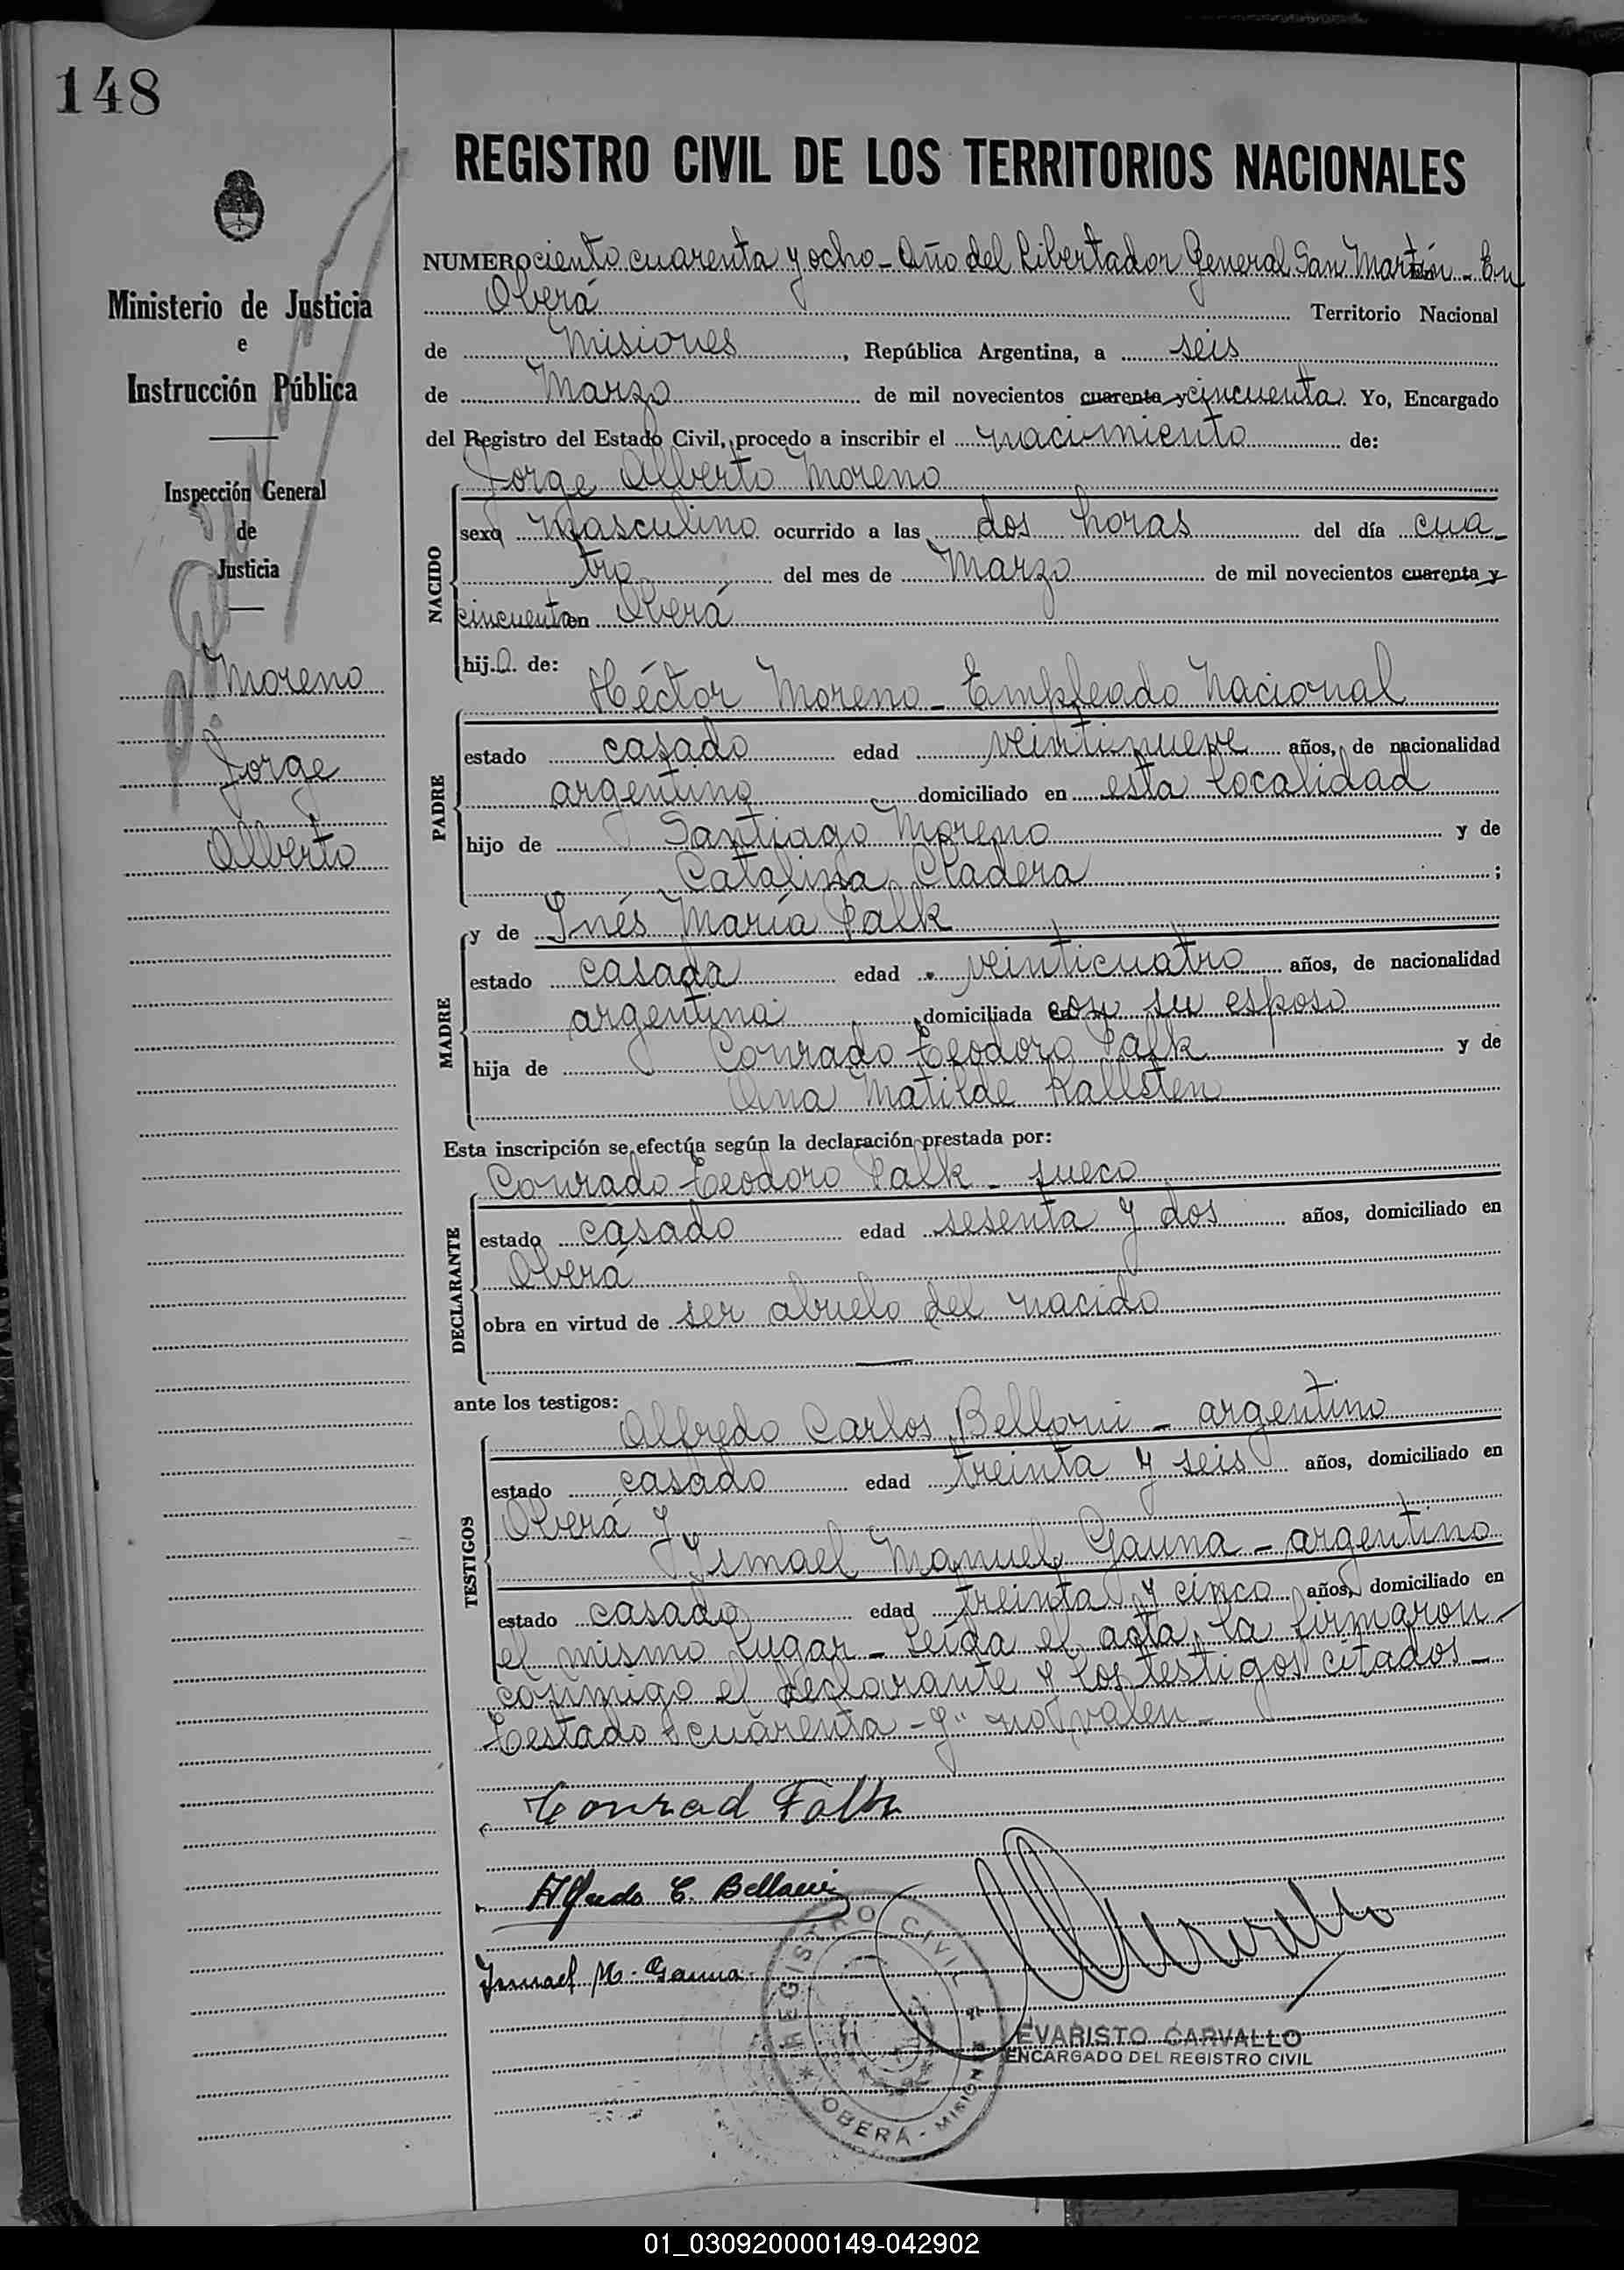 148
REGISTRO CIVIL DE LOS TERRITORIOS NACIONALES
Ministerio de Justicia
e
Instrucción Pública
Inspección General
de
Justicia
Moreno
Jorge
Alberto
NUMERO ciento cuarenta y ocho - Año del Libertador General San Martín - En
Oberá Territorio Nacional
de Misiones, República Argentina, a seis
de Marzo de mil novecientos cuarenta y cincuenta. Yo, Encargado
del Registro del Estado Civil, procedo a inscribir el nacimiento de:
Jorge Alberto Moreno
NACIDO
sexo masculino ocurrido a las dos horas del día cua-
tro del mes de Marzo de mil novecientos cuarenta y
cincuenta en Oberá
hijo de:
Héctor Moreno - Empleado Nacional
PADRE
estado casado edad veintinueve años, de nacionalidad
argentino domiciliado en esta localidad
hijo de Santiago Moreno y de
Catalina Cladera;
MADRE
y de Inés María Falk
estado casada edad veinticuatro años, de nacionalidad
argentina, domiciliada con su esposo
hija de Conrado Teodoro Falk y de
Ana Matilde Kallsten
Esta inscripción se efectúa según la declaración prestada por:
DECLARANTE
Conrado Teodoro Falk - sueco
estado casado edad sesenta y dos años, domiciliado en
Oberá
obra en virtud de ser abuelo del nacido
ante los testigos:
TESTIGOS
Alfredo Carlos Belloni - argentino
estado casado edad treinta y seis años, domiciliado en
Oberá y
Ismael Manuel Gauna - argentino
estado casado edad treinta y cinco años, domiciliado en
el mismo lugar - Leída el acta, la firmaron
conmigo el declarante y los testigos citados -
Testado "cuarenta - y" no valen -
Conrad Falk
Alfredo C. Belloni
Ismael M. Gauna
REGISTRO CIVIL
OBERÁ - MISIONES
EVARISTO CARVALLO
ENCARGADO DEL REGISTRO CIVIL
01_030920000149-042902